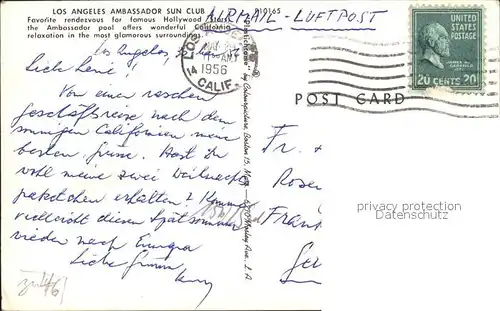 LOS ANGELES AMBASSADOR SUN CLUB P10165
Favorite rendezvous for famous Hollywood Stars,
the Ambassador pool offers wonderful California
relaxation in the most glamorous surroundings.
AIRMAIL - LUFTPOST
LOS
1956
CALIF.
UNITED STATES
POSTAGE
20 CENTS 20
POST CARD
Los Angeles,
Liebe Leni!
Von einer raschen
Geschäftsreise nach dem
sonnigen Californien meine
besten Grüsse. Hast Du
wohl meine zwei Weihnachts
päckchen erhalten? Komme
vielleicht diesen Spätsommer
wieder nach Europa
Liebe Grüsse
Fr.
Rosen
Frank
Ger
privacy protection watermark
not visible on the real product